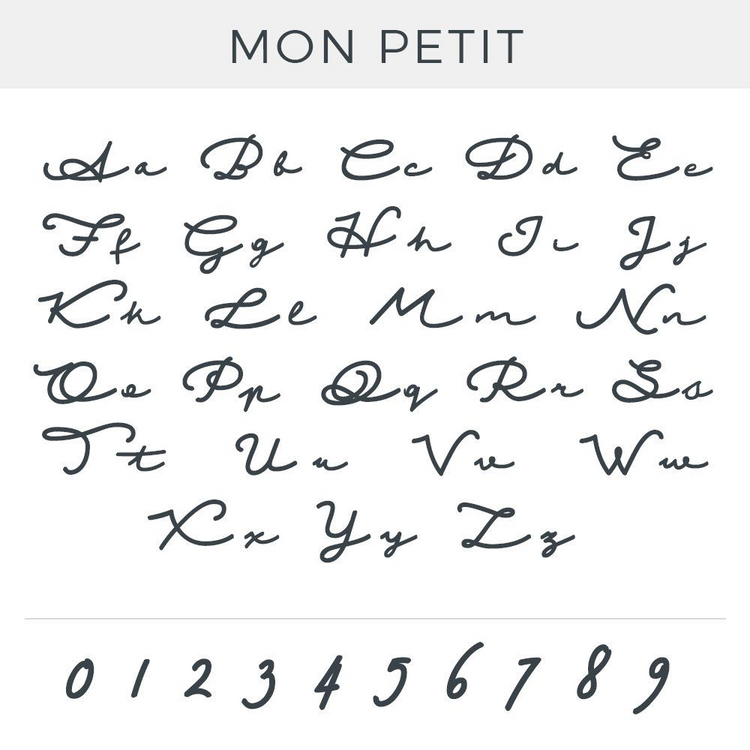 MON PETIT
Aa Bb Cc Dd Ee
Ff Gg Hh Ii Jj
Kk Ll Mm Nn
Oo Pp Qq Rr Ss
Tt Uu Vv Ww
Xx Yy Zz
0 1 2 3 4 5 6 7 8 9